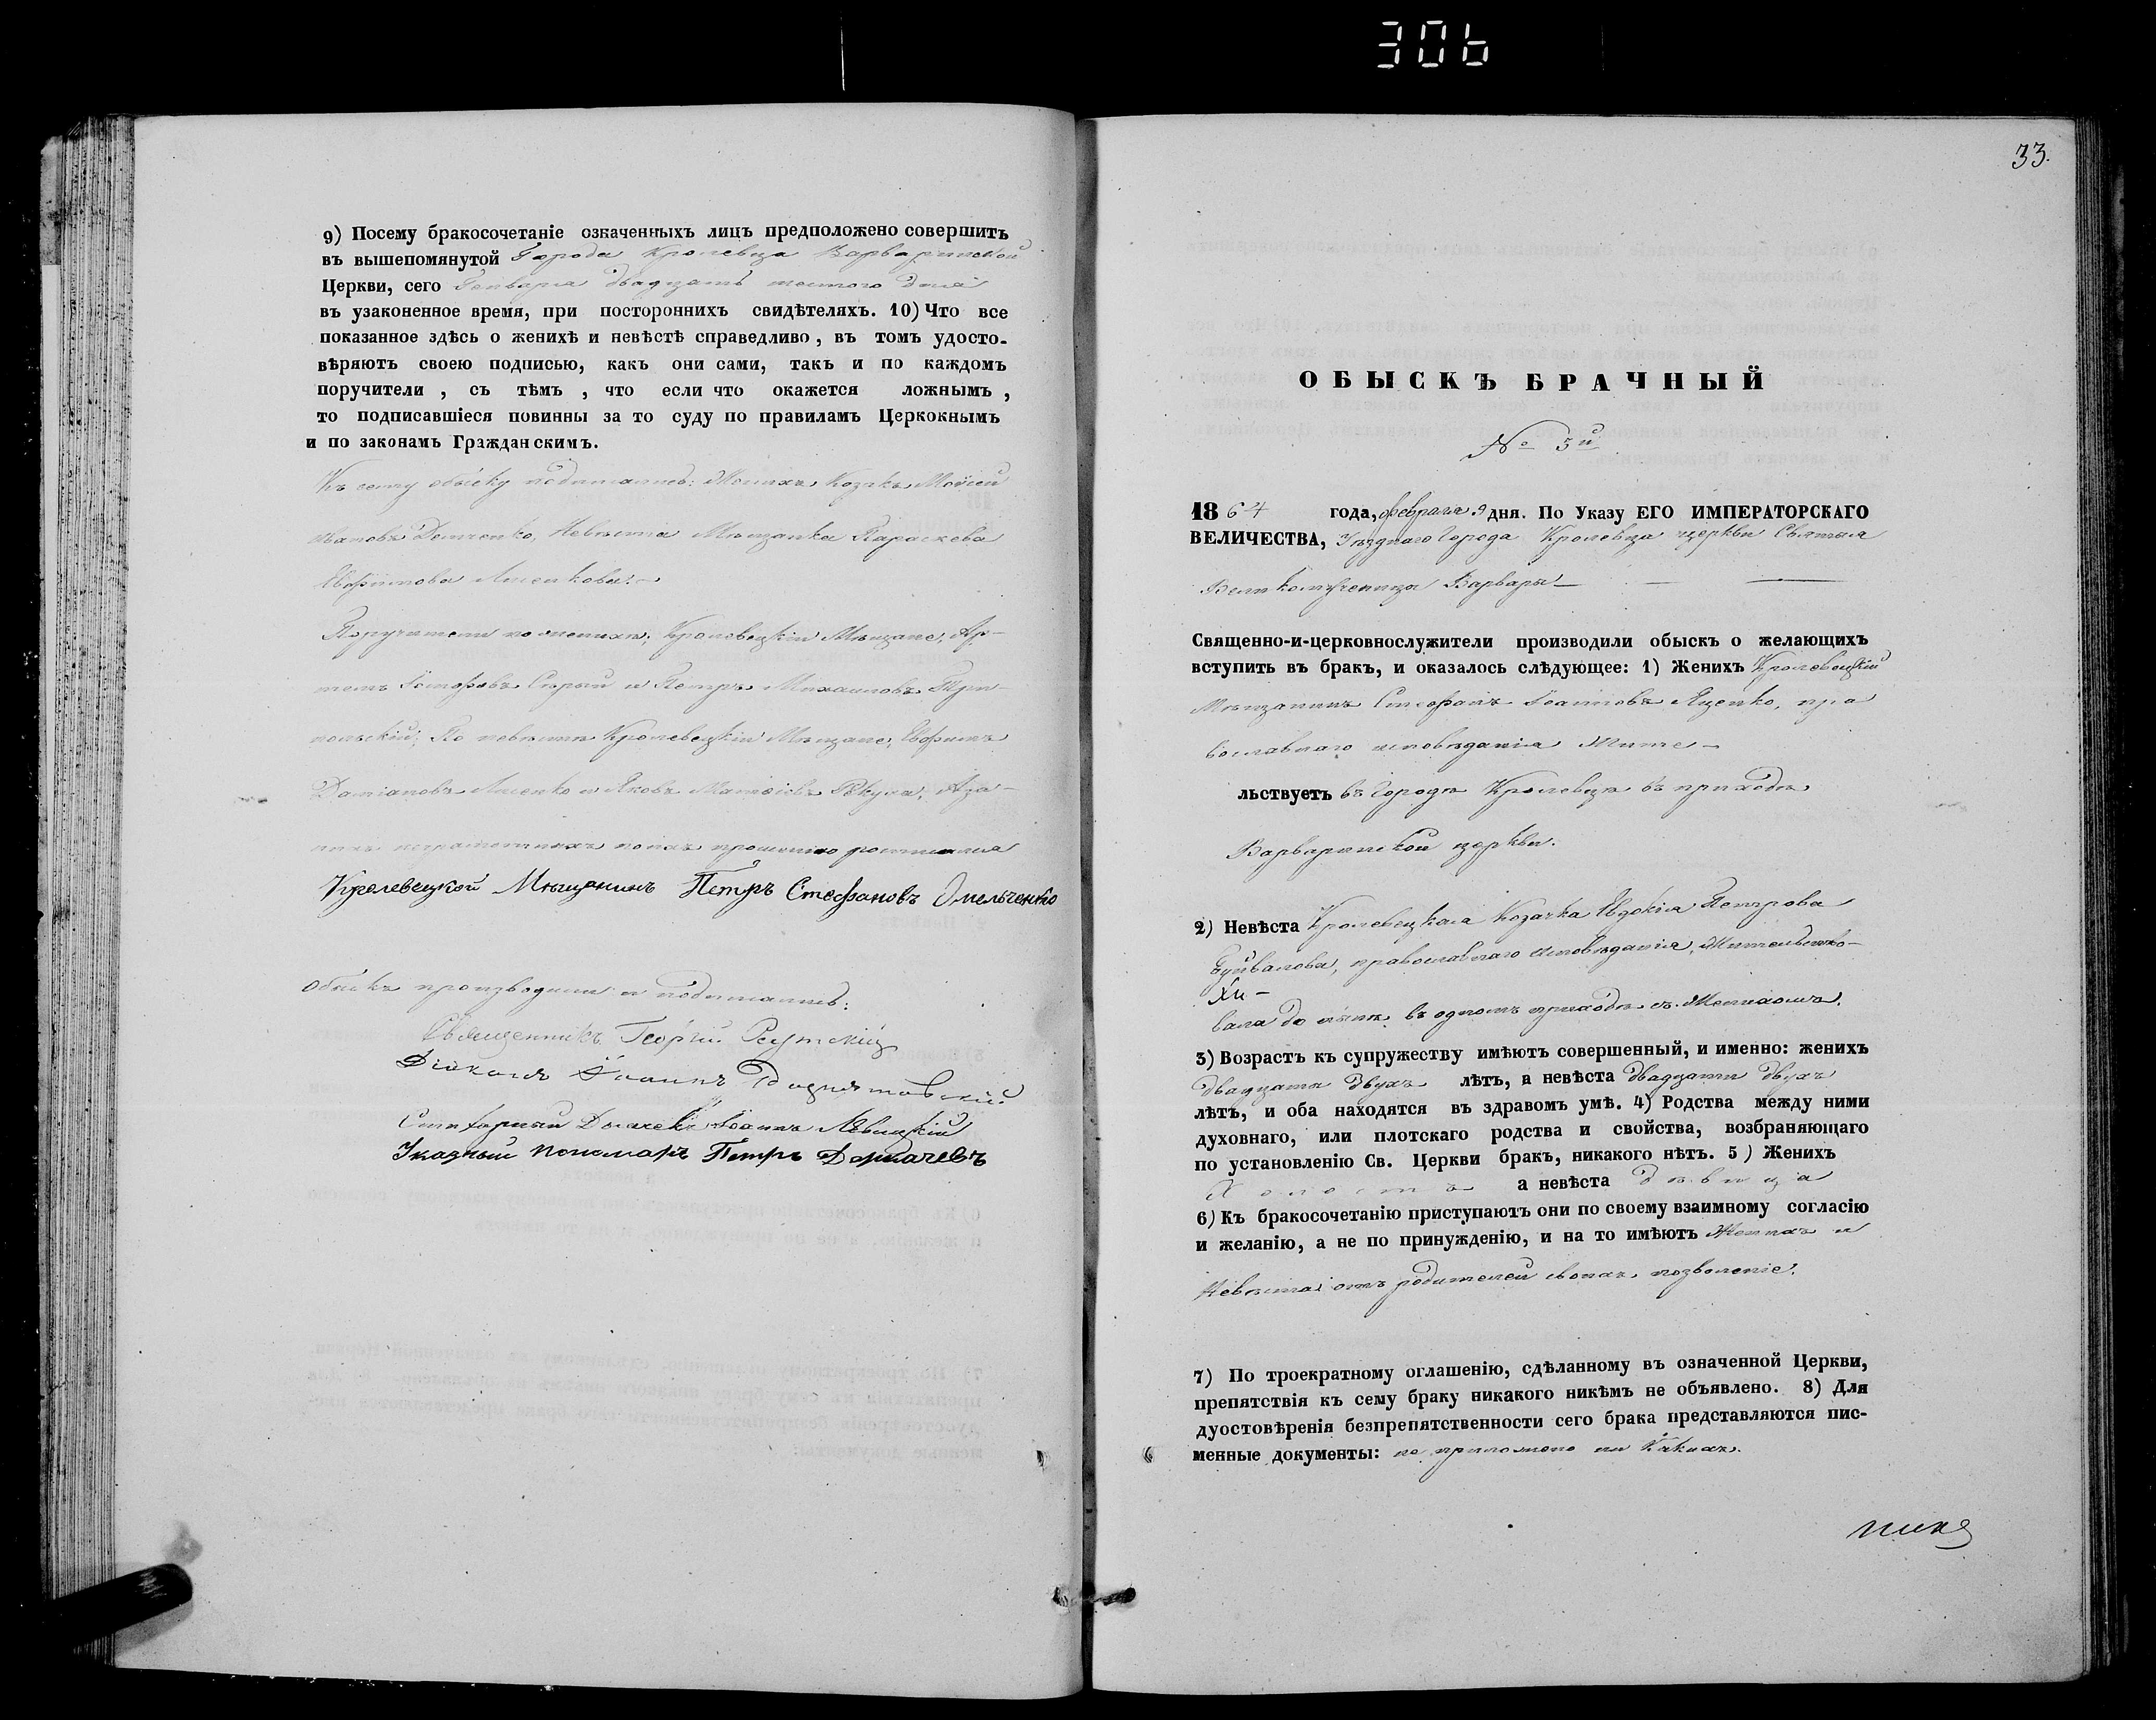 306
9) Посему бракосочетаніе означенныхъ лицъ предположено совершить
въ вышепомянутой Города Кролевца Варваринской
Церкви, сего Генваря двадцать шестого дня
въ узаконенное время, при постороннихъ свидѣтеляхъ. 10) Что все
показанное здѣсь о женихѣ и невѣстѣ справедливо, въ томъ удосто-
вѣряютъ своею подписью, какъ они сами, такъ и по каждомъ
поручители, съ тѣмъ, что если что окажется ложнымъ,
то подписавшіеся повинны за то суду по правиламъ Церкокнымъ
и по законамъ Гражданскимъ.
Къ сему обыску подписались: Женихъ Козакъ Моѵсей
Ивановъ Демченко, Невѣста Мѣщанка Параскева
Евфимова Лисенкова.
Поручители по женихѣ; Кролевецкіи Мѣщане, Ар-
темъ Сѣрый и Петръ Михаиловъ
польскій; По невѣстѣ Кролевецкіи Мѣщане; Евфимъ
Даміановъ Лисенко и Яковъ, А за
нихъ неграмотныхъ по ихъ прошенію росписался
Кролевецкой Мѣщанинъ Петръ Стефановъ Омельченко
Обыскъ производили и подписались:
Священникъ Георгій
Діаконъ Іоаннъ
Дьячекъ Іоаннъ Левицкій
Указный пономарь Петръ Деркачевъ
33.
ОБЫСКЪ БРАЧНЫЙ
№ 5й
1864 года, февраля 9 дня. По Указу ЕГО ИМПЕРАТОРСКАГО
ВЕЛИЧЕСТВА, Уѣзднаго Города Кролевца церкви Святыя
Великомученицы Варвары
Священно-и-церковнослужители производили обыскъ о желающихъ
вступить въ бракъ, и оказалось слѣдующее: 1) Женихъ Кролевецкій
Мѣщанинъ Стефанъ Іоанновъ Яценко, пра
вославнаго исповѣданія Жите-
льствуетъ въ Городѣ Кролевцѣ въ приходѣ
Варваринской церкви.
2) Невѣста Кролевецкая Козачка Евдокія Петрова
Буйвалова, православнаго исповѣданія, Жительство-
вала до нынѣ въ одномъ приходѣ съ Женихомъ.
3) Возрастъ къ супружеству имѣютъ совершенный, и именно: женихъ
двадцати двухъ лѣтъ, а невѣста двадцати двухъ
лѣтъ, и оба находятся въ здравомъ умѣ. 4) Родства между ними
духовнаго, или плотскаго родства и свойства, возбраняющаго
по установленію Св. Церкви бракъ, никакого нѣтъ. 5) Женихъ
Холостъ а невѣста дѣвица
6) Къ бракосочетанію приступаютъ они по своему взаимному согласію
и желанію, а не по принужденію, и на то имѣютъ Женихъ и
Невѣста отъ родителей своихъ позволеніе.
7) По троекратному оглашенію, сдѣланному въ означенной Церкви,
препятствія къ сему браку никакого никѣмъ не объявлено. 8) Для
дуостовѣренія безпрепятственности сего брака представляются пис-
менные документы: не приложено ни какихъ.